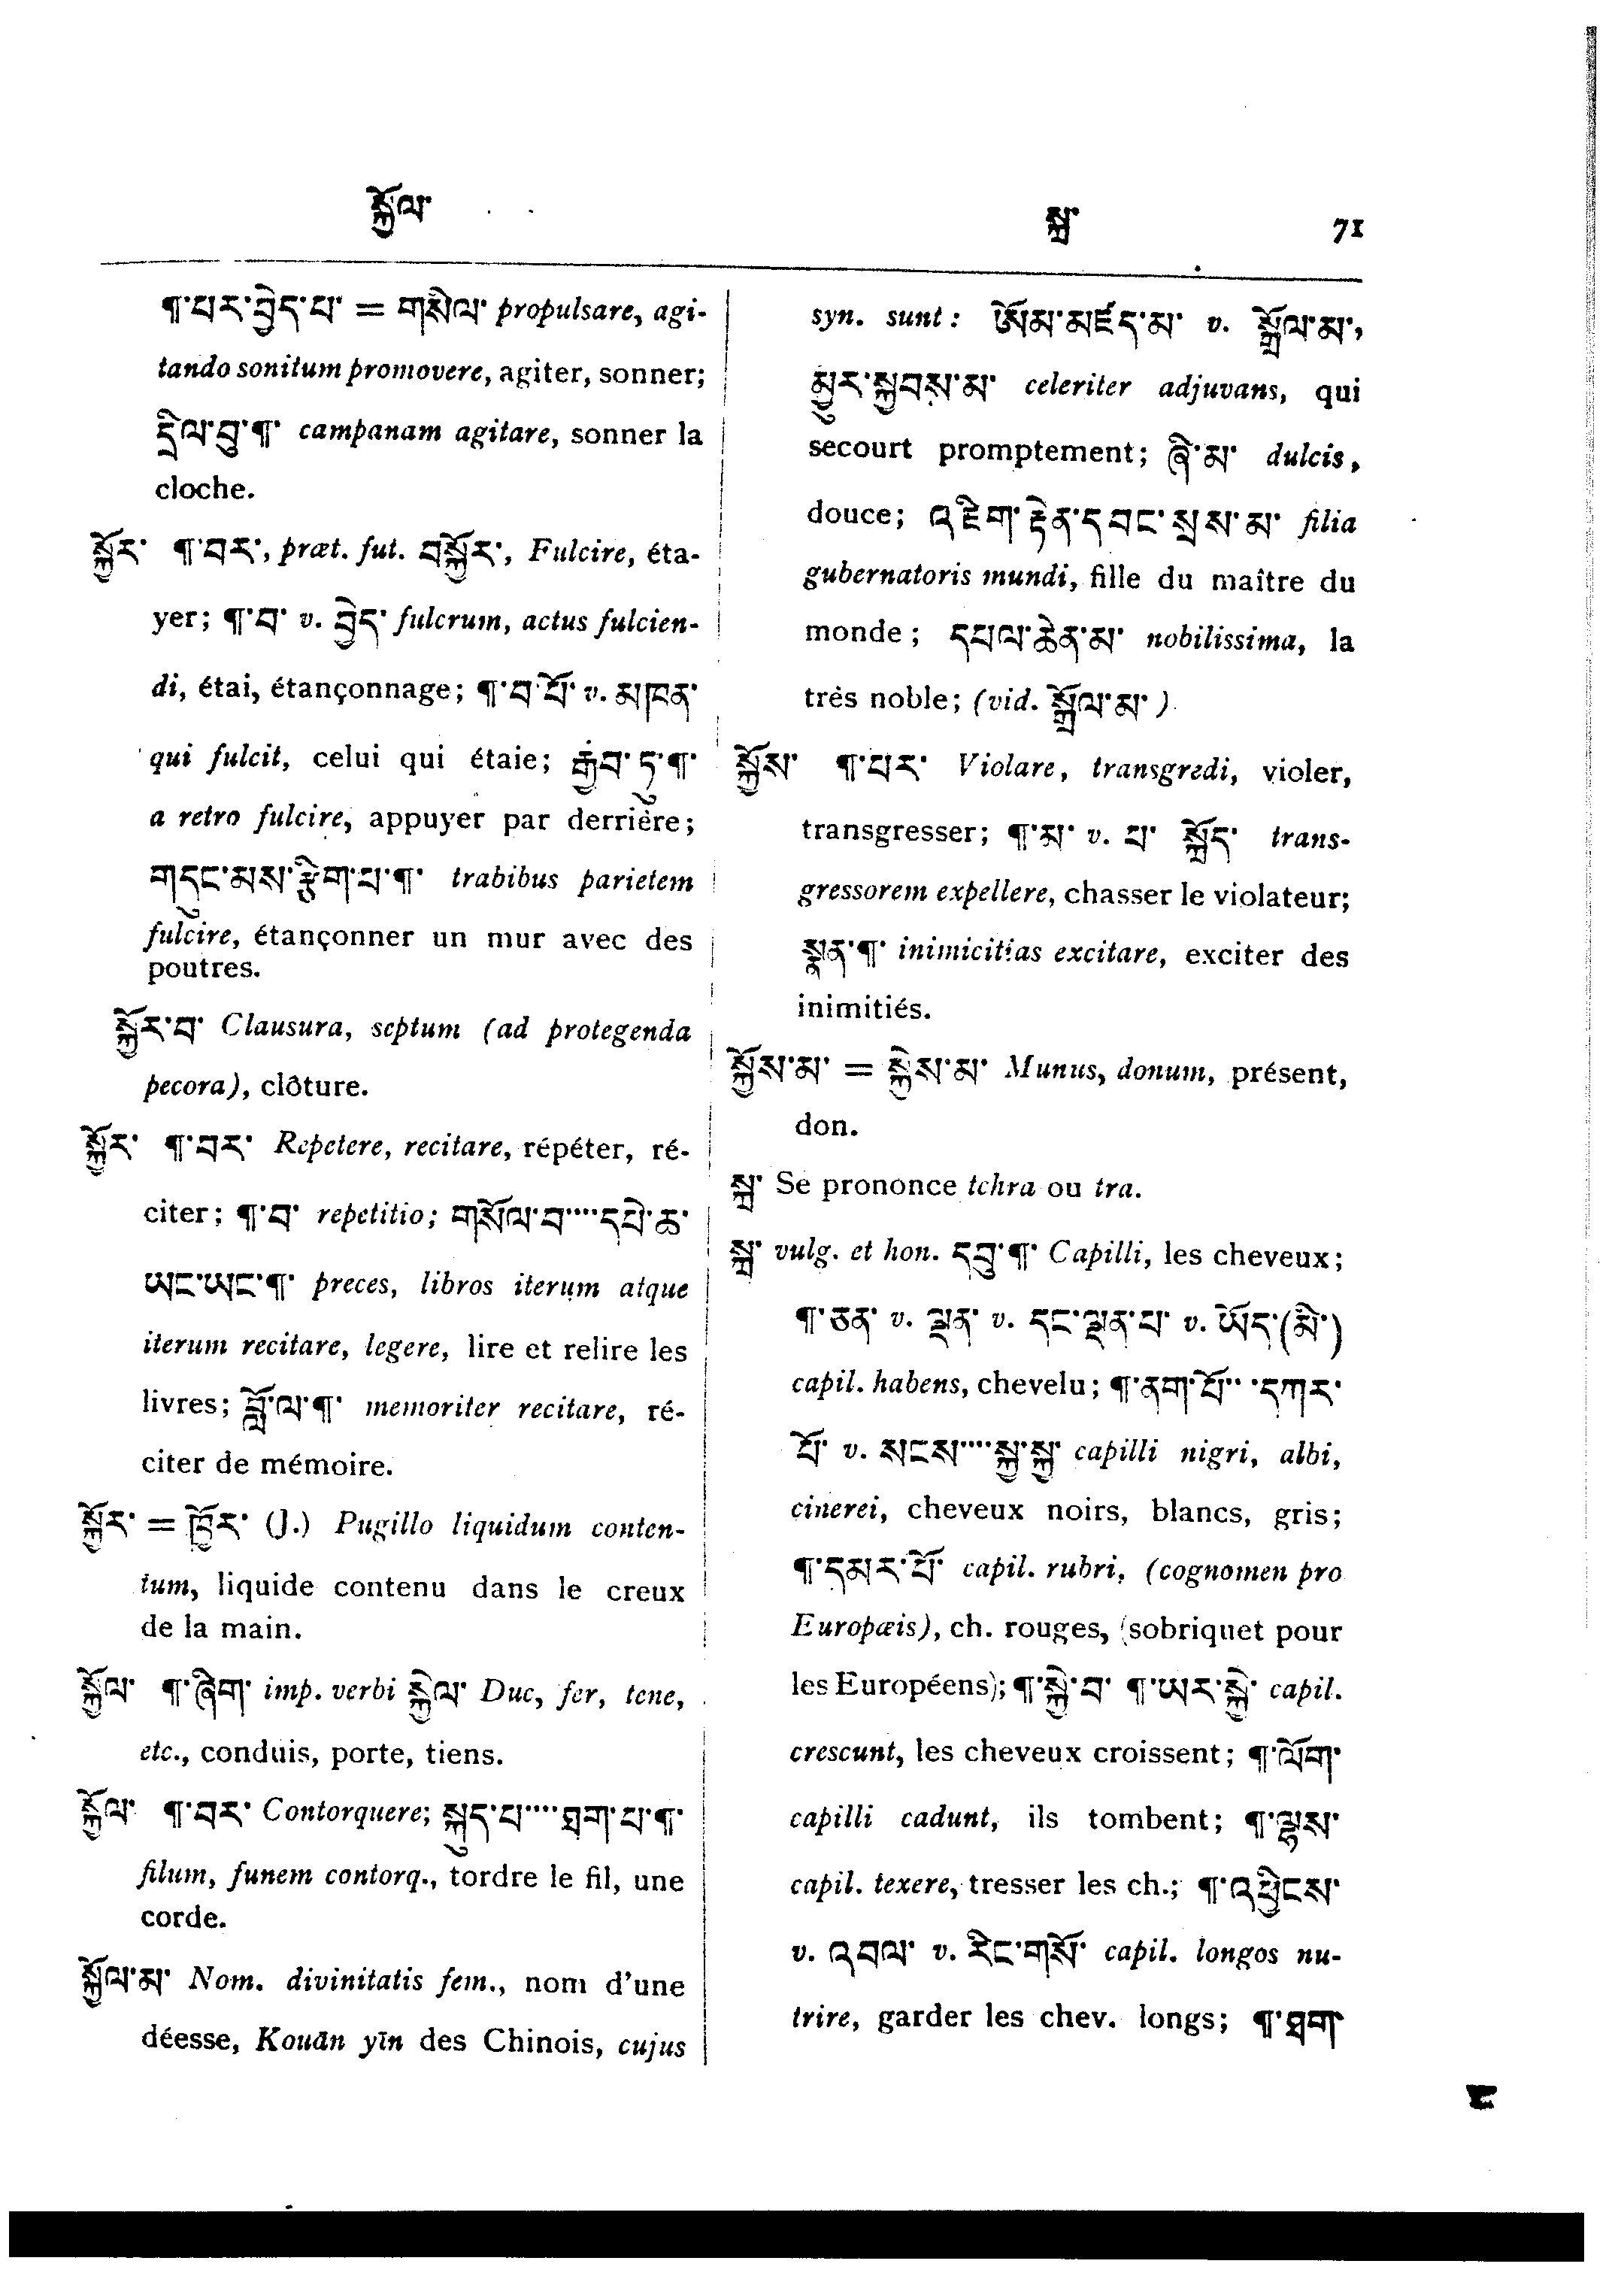 སྐྱོལ་
སྐྲ་ 71
¶་པར་བྱེད་པ་ = གསིལ་ propulsare, agi-
tando sonitum promovere, agiter, sonner;
དྲིལ་བུ་¶་ campanam agitare, sonner la
cloche.
སྐྱོར་ ¶་བར་, præt. fut. བསྐྱོར་, Fulcire, éta-
yer; ¶་བ་ v. བྱེད་ fulcrum, actus fulcien-
di, étai, étançonnage; ¶་བ་པོ་ v. མཁན་
qui fulcit, celui qui étaie; རྒྱབ་ཏུ་¶་
a retro fulcire, appuyer par derrière;
གདུང་མས་རྩིག་པ་¶་ trabibus parietem
fulcire, étançonner un mur avec des
poutres.
སྐྱོར་བ་ Clausura, septum (ad protegenda
pecora), clôture.
སྐྱོར་ ¶་བར་ Repetere, recitare, répéter, ré-
citer; ¶་བ་ repetitio; གསོལ་བ་...་དཔེ་ཆ་
ཡང་ཡང་¶་ preces, libros iterum atque
iterum recitare, legere, lire et relire les
livres; བློ་ལ་¶་ memoriter recitare, ré-
citer de mémoire.
སྐྱོར་ = ཁྱོར་ (J.) Pugillo liquidum conten-
tum, liquide contenu dans le creux
de la main.
སྐྱོལ་ ¶་ཞིག་ imp. verbi སྐྱེལ་ Duc, fer, tene,
etc., conduis, porte, tiens.
སྐྱོལ་ ¶་བར་ Contorquere; སྐུད་པ་...་ཐག་པ་¶་
filum, funem contorq., tordre le fil, une
corde.
སྐྱོལ་མ་ Nom. divinitatis fem., nom d'une
déesse, Kouān yīn des Chinois, cujus
syn. sunt: ཨོམ་མཛད་མ་ v. སྒྲོལ་མ་,
མྱུར་སྐྱབས་མ་ celeriter adjuvans, qui
secourt promptement; ཞི་མ་ dulcis,
douce; འཇིག་རྟེན་དབང་སྲས་མ་ filia
gubernatoris mundi, fille du maître du
monde; དཔལ་ཆེན་མ་ nobilissima, la
très noble; (vid. སྒྲོལ་མ་)
སྐྱོས་ ¶་པར་ Violare, transgredi, violer,
transgresser; ¶་མ་ v. པ་ སྐྲོད་ trans-
gressorem expellere, chasser le violateur;
སྡན་¶་ inimicitias excitare, exciter des
inimitiés.
སྐྱོས་མ་ = སྐྱེས་མ་ Munus, donum, présent,
don.
སྐྲ་ Se prononce tchra ou tra.
སྐྲ་ vulg. et hon. དབུ་¶་ Capilli, les cheveux;
¶་ཅན་ v. ལྡན་ v. དང་ལྡན་པ་ v. ཡོད་(མི་)
capil. habens, chevelu; ¶་ནག་པོ་...་དཀར་
པོ་ v. སངས་...་སྐྱ་སྐྱ་ capilli nigri, albi,
cinerei, cheveux noirs, blancs, gris;
¶་དམར་པོ་ capil. rubri, (cognomen pro
Europæis), ch. rouges, (sobriquet pour
les Européens); ¶་སྐྱེ་བ་ ¶་ཡར་སྐྱེ་ capil.
crescunt, les cheveux croissent; ¶་ལོག་
capilli cadunt, ils tombent; ¶་ལྷས་
capil. texere, tresser les ch.; ¶་འཕྱིངས་
v. འབལ་ v. རིང་གསོ་ capil. longos nu-
trire, garder les chev. longs; ¶་ཐག་